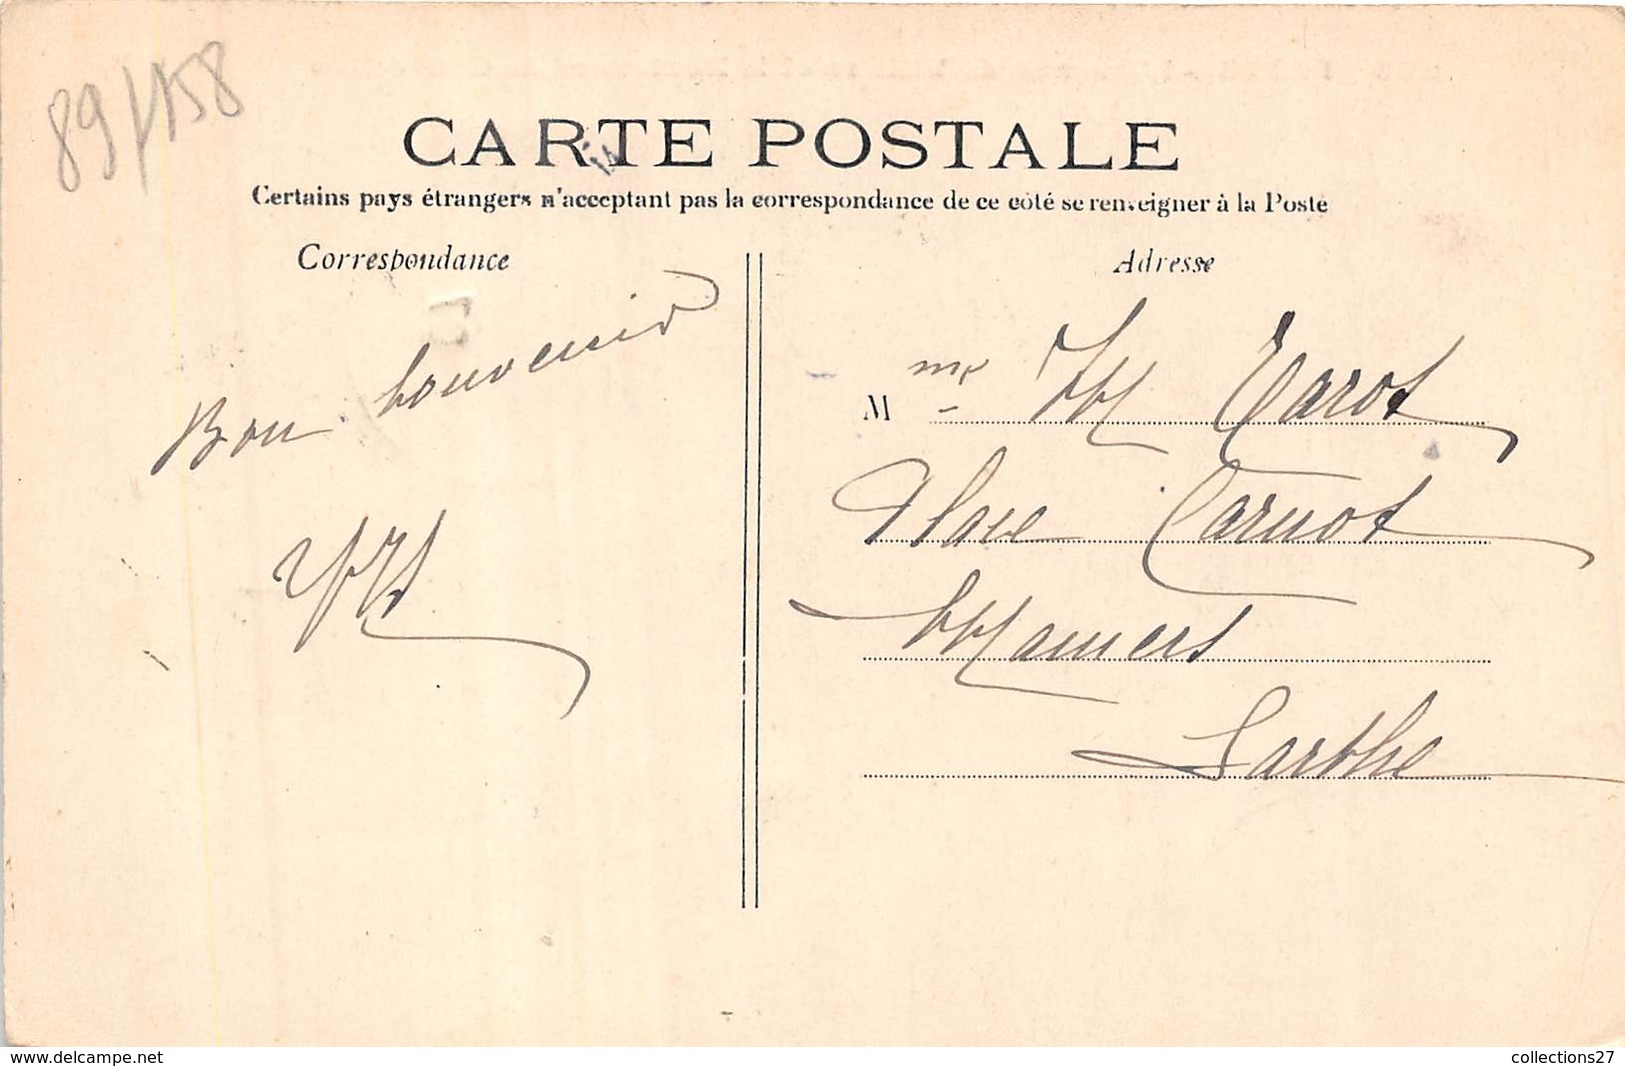 89/158
CARTE POSTALE
Certains pays étrangers n'acceptant pas la correspondance de ce côté se renseigner à la Poste
Correspondance
Adresse
Bon souvenir
M me M
Place Carnot
Mamers
Sarthe
www.delcampe.net
collections27